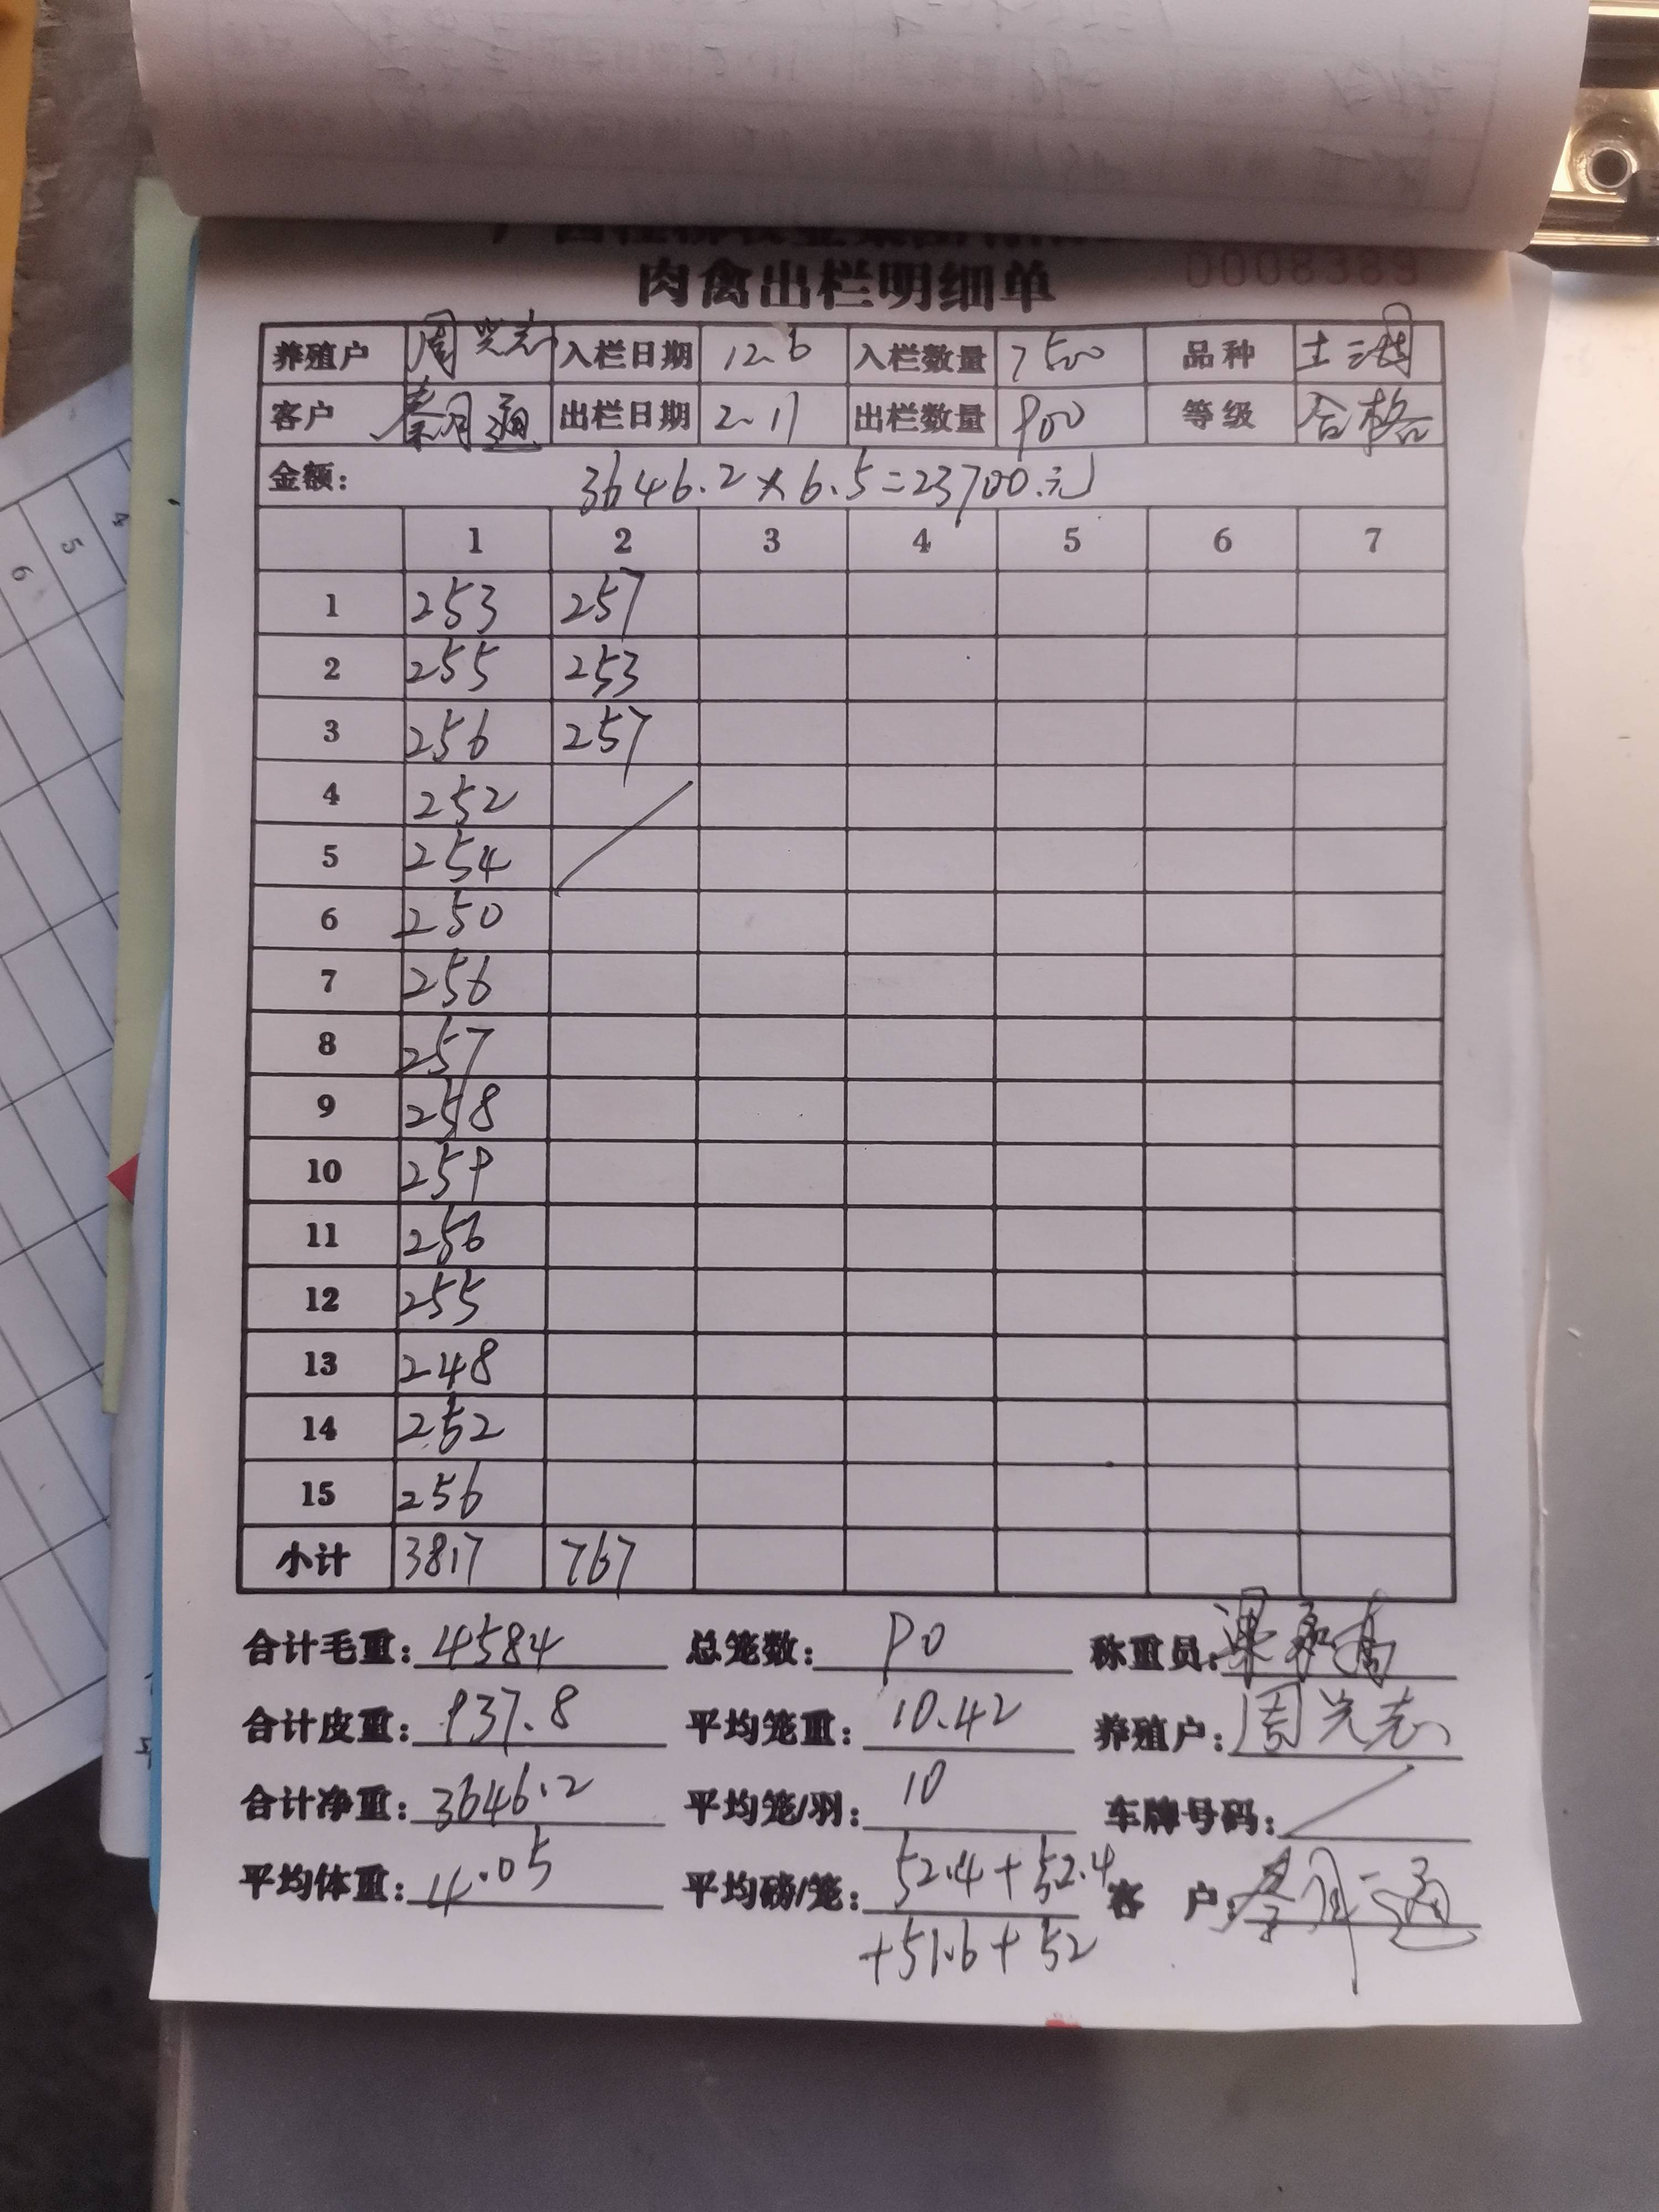 肉禽出栏明细单
0008389
养殖户 周光志 入栏日期 12.6 入栏数量 7500 品种 土二
客户 秦月通 出栏日期 2.17 出栏数量 900 等级 合格
金额: 3646.2×6.5=23700.元
1 2 3 4 5 6 7
1 253 257
2 255 253
3 256 257
4 252
5 254
6 250
7 256
8 257
9 258
10 259
11 256
12 255
13 248
14 252
15 256
小计 3817 767
合计毛重: 4584 总笼数: 90 称重员:
合计皮重: 937.8 平均笼重: 10.42 养殖户: 周光志
合计净重: 3646.2 平均笼/羽: 10 车牌号码:
平均体重: 4.05 平均磅/笼: 52.4+52.4 客 户:
+51.6+52
4
5
6